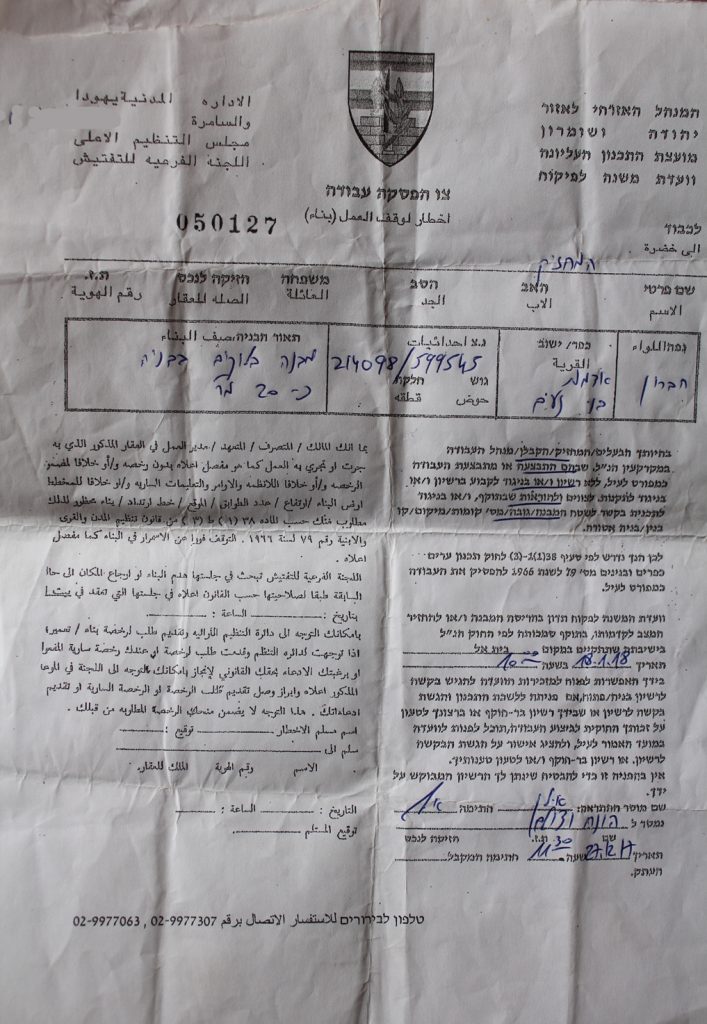 المنهل האזרחי לאזור
יהודה ושומרון
מועצת התכנון העליונה
וועדת משנה לפיקוח
الاداره المدنية يهودا
والسامرة
مجلس التنظيم الاعلى
اللجنه الفرعيه للتفتيش
צו הפסקת עבודה
اخطار لوقف العمل (بناء)
050127
לכבוד
الى حضرة
המחזיק
שם פרטי האב הסב משפחה חזיקה לנכס ת.ז.
الاسم الاب الجد العائلة الصله للعقار رقم الهوية
נפה/اللواء כפר/ישוב נ.צ احداثيات תאור הבניה/صيف البناء
القرية
חברון אדמות בני נעים
214098/599545
גוש חלקה
حوض قطعه
מבנה בלוקים בבניה
כ- 20 מר
בהיותך הבעלים/המחזיק/הקבלן/מנהל העבודה
במקרקעין הנ״ל, שבהם התבצעה או מתבצעת העבודה
כמפורט לעיל, ללא רשיון ו/או בניגוד לקבוע ברשיון ו/או
בניגוד לתקנות לצווים ולהוראות שבתוקף, ו/או בניגוד
לתכנית בקשר לשטח המבנה/גובה/מסי קומות/מיקום/קו
בנין/בניה אסורה.
לכן הנך נדרש לפי סעיף 38(1)-(3) לחוק תכנון ערים
כפרים ובנינים מסי 79 לשנת 1966 להפסיק את העבודה
כמפורט לעיל.
וועדת המשנה לפקוח תדון בהריסת המבנה ו/או להחזיר
המצב לקדמותו, בתוקף סמכותה לפי החוק הנ״ל
בישיבתה שתתקיים במקום בית אל
תאריך 18.1.18 בשעה 10:00
בידך האפשרות לפנות למזכירות הוועדה להגיש בקשה
לרשיון בניה/פתוח, אם פנית ללשכת התכנון והגשת
בקשה לרשיון או שבידך רשיון בר-תוקף או ברצונך לטעון
על זכותך החוקית לביצוע העבודה, תוכל לפנות לוועדה
במועד האמור לעיל, ולהציג אישור על הגשת הבקשה
לרשיון, או רשיון בר-תוקף ו/או לטעון טענותיך.
אין בהפניה זו כדי להבטיח שינתן לך הרשיון המבוקש על
ידך.
שם מוסר ההתראה: חתימה
נמסר ל הונח
שם ת.ז. חזיקה לנכס
תאריך 27.12.17 שעה 11:30 חתימה המקבל
העתק.
بما انك المالك / المتصرف / المتعهد / مدير العمل في العقار المذكور الذي به
جرت او تجري به العمل كما هو مفصل اعلاه بدون رخصه و/أو خلافا للمضمن
الرخصه و/أو خلافا للانظمه والاوامر والتعليمات الساريه و/أو خلافا للمخطط
اوض البناء / ارتفاع / عدد الطوابق / الموقع / خط ارتداد / بناء محظور لذلك
مطلوب منك حسب الماده ٣٨ (١) ط (٣) من قانون تنظيم المدن والقرى
والابنية رقم ٧٩ لسنة ١٩٦٦ . التوقف فورا عن الاسمرار في البناء كما مفصل
اعلاه .
اللجنة الفرعية للتفتيش تبحث في جلستها هدم البناء او ارجاع المكان الى حالته
السابقة طبقا لصلاحيتها حسب القانون اعلاه في جلستها التي تعقد في
بتاريخ: الساعة :
بامكانك التوجه الى دائرة التنظيم اللوائيه وتقديم طلب لرخصة بناء / تعمير؛
اذا توجهت لدائره التنظم وقدمت طلب لرخصة او عندك رخصة سارية المفعول
او برغبتك الادعاء بحقك القانوني لإنجاز بامكانك التوجه الى اللجنة في الموعد
المذكور اعلاه وابراز وصل تقديم طلب الرخصة او الرخصة السارية او تقديم
ادعاءاتك . هذا التوجه لا يضمن منحك الرخصه المطلوبه من قبلك .
اسم مسلم الاخطار
سلم الى
الاسم رقم الهوية المالك للعقار.
التاريخ : الساعة :
توقيع المستلم
טלפון לבירורים للاستفسار الاتصال برقم 02-9977307 , 02-9977063